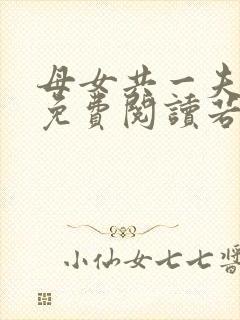 母女共一夫
免費閱讀若
小仙女七七醬